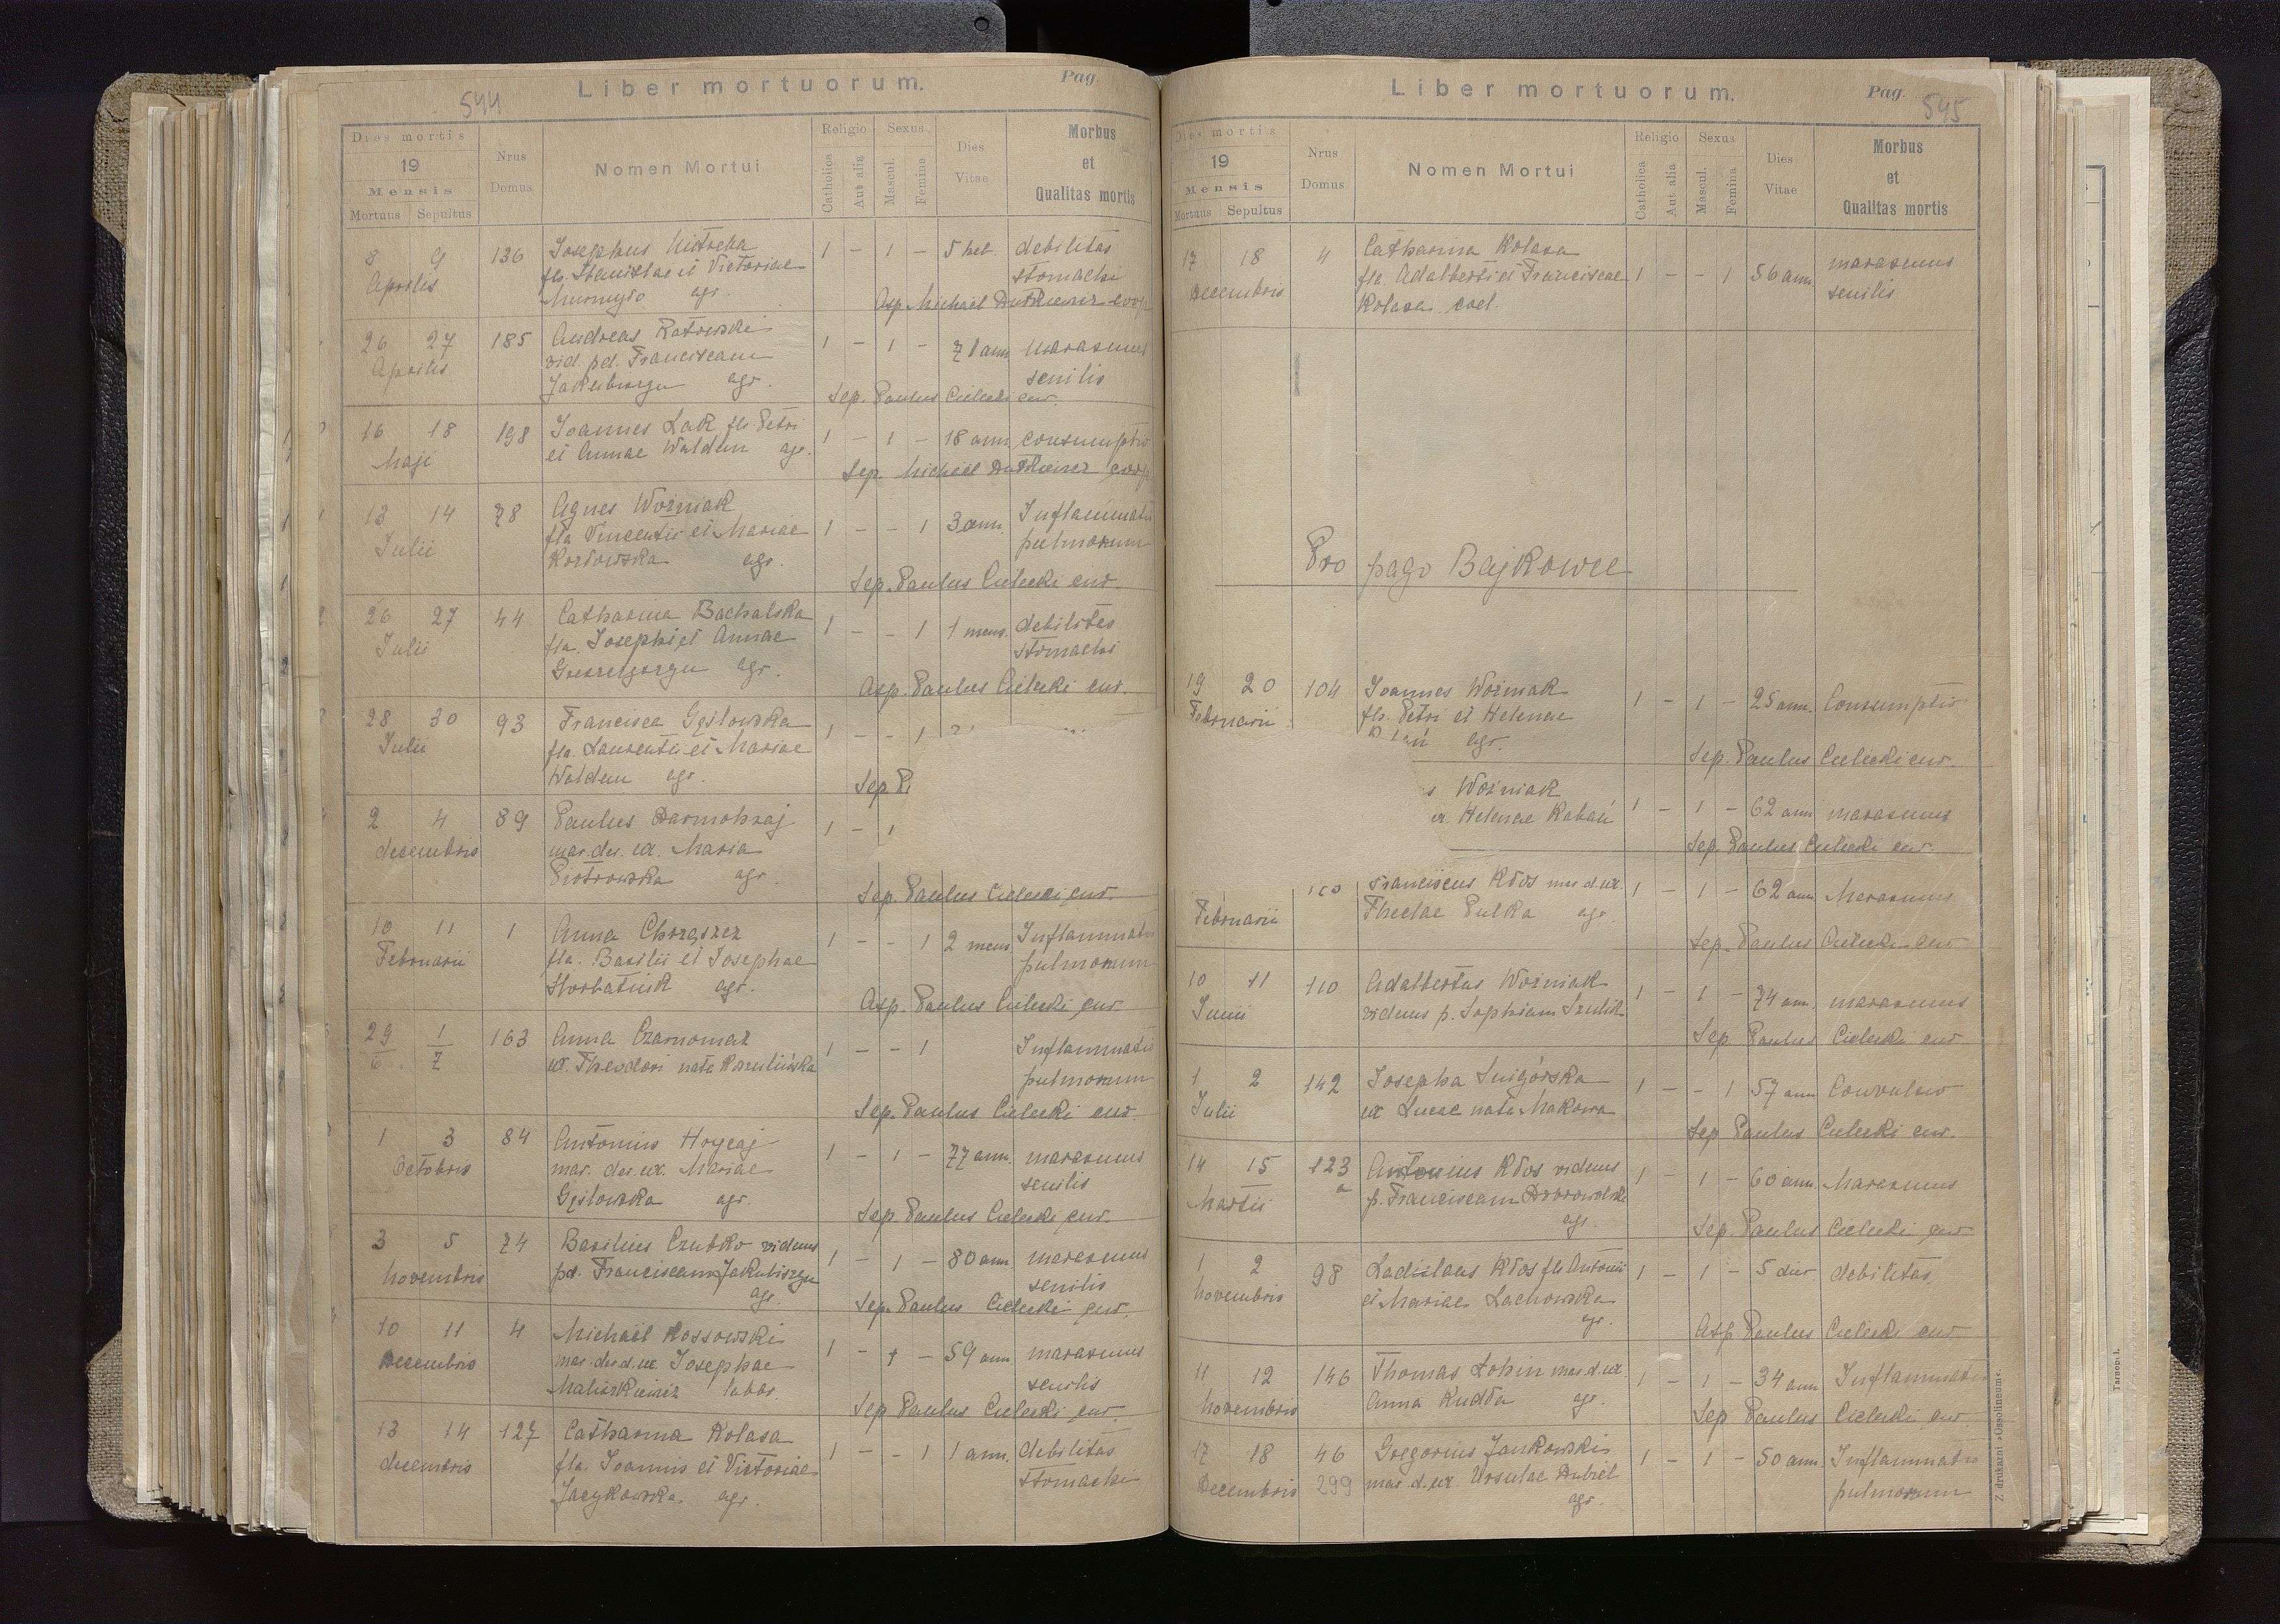 544
Liber mortuorum.
Pag.
Dies mortis
19
Mensis
Mortuus Sepultus
Nrus
Domus
Nomen Mortui
Religio
Catholica
Aut alia
Sexus
Mascul.
Femina
Dies
Vitae
Morbus
et
Qualitas mortis
8 9 136 Josephus 1 - 1 - 5 heb. debilitas
Aprilis fls. Stanislae et Victoriae stomachi
agr. Asp. Michael Dutkiewicz coop
26 27 185 Andreas Ratowski 1 - 1 - 71 ann. marasmus
Aprilis vid. pd. Franciscam senilis
agr. Sep. Paulus Cielecki cur.
16 18 198 Joannes Łak fls. Petri 1 - 1 - 18 ann. consumptio
Maji et Annae Waldun agr.
Sep. Michael Dutkiewicz coop
13 14 78 Agnes Woźniak 1 - - 1 3 ann. Inflammatio
Julii fla Vincentii et Mariae pulmonum
Kozłowska agr.
Sep. Paulus Cielecki cur.
26 27 44 Catharina Bachalska 1 - - 1 1 mens. debilitas
Julii fla. Josephi et Annae stomachi
agr.
Asp. Paulus Cielecki cur.
28 30 93 Francisca Gęslowska 1 - - 1
Julii fla. Laurentii et Mariae
Waldun agr. Sep. P
2 4 89 Paulus Darmohraj 1 - 1
decembris mar. der. ux. Maria
Piotrowska agr.
Sep. Paulus Cielecki cur.
10 11 1 Anna Chrząszcz 1 - - 1 2 mens Inflammatio
Februarii fla. Basilii et Josephae pulmonum
Horbatiuk agr.
Asp. Paulus Cielecki cur.
29 1 163 Anna Czarnomaz 1 - - 1 Inflammatio
6 7 ux. Theodori nata pulmonum
Sep. Paulus Cielecki cur.
1 3 84 Antonius Hrycaj 1 - 1 - 77 ann. marasmus
Octobris mar. der. ux. Mariae senilis
Gęslowska agr.
Sep. Paulus Cielecki cur.
3 5 74 Basilius Czubko viduus 1 - 1 - 80 ann. marasmus
Novembris pd. Franciscam Jakubiszyn senilis
agr. Sep. Paulus Cielecki cur.
10 11 4 Michaël Kossowski 1 - 1 - 59 ann. marasmus
Decembris mar. der. d. ux. Josephae senilis
labor.
Sep. Paulus Cielecki cur.
13 14 127 Catharina Kolasa 1 - - 1 1 ann. debilitas
decembris fla. Joannis et Victoriae stomachi
Jacykowska agr.
Liber mortuorum.
Pag. 545
Dies mortis
19
Mensis
Mortuus Sepultus
Nrus
Domus
Nomen Mortui
Religio
Catholica
Aut alia
Sexus
Mascul.
Femina
Dies
Vitae
Morbus
et
Qualitas mortis
17 18 4 Catharina Kolasa
Decembris fla. Adalberti et Franciscae 1 - - 1 56 ann. marasmus
Kolasa coel. senilis
Pro pago Bajkowce
19 20 104 Joannes Woźniak 1 - 1 - 25 ann. Consumptio
Februarii fls. Petri et Helenae
agr.
Sep. Paulus Cielecki cur.
s Woźniak
ux. Helenae Rabań 1 - 1 - 62 ann marasmus
Sep. Paulus Cielecki cur.
Franciscus Kłos mar d. ux. 1 - 1 - 62 ann Marasmus
Februarii Theclae Pulka agr.
Sep. Paulus Cielecki cur
10 11 110 Adalbertus Woźniak 1 - 1 - 74 ann. marasmus
Junii viduus p. Sophiam
Sep. Paulus Cielecki cur
1 2 142 Josepha Śnigórska 1 - - 1 57 ann Convulsio
Julii ux Lucae nata Makowa
Sep. Paulus Cielecki cur.
14 15 123 Antonius Kłos viduus 1 - 1 - 60 ann. Marasmus
Martii a p. Franciscam
agr. Sep. Paulus Cielecki cur
1 2 98 Ladislaus Kłos fls Antonii 1 - 1 - 5 dier debilitas
Novembris et Mariae Lachowska
agr.
Asp. Paulus Cielecki cur
11 12 146 Thomas Łohin mar d. ux 1 - 1 - 34 ann Inflammatio
Novembris Anna Kudła agr.
Sep Paulus Cielecki cur.
17 18 46 Gregorius Jankowski 1 - 1 - 50 ann. Inflammatio
Decembris 299 mar d. ux. Ursulae Dubiel pulmonum
agr.
Z drukarni »Ossolineum«.
Tarnopol.